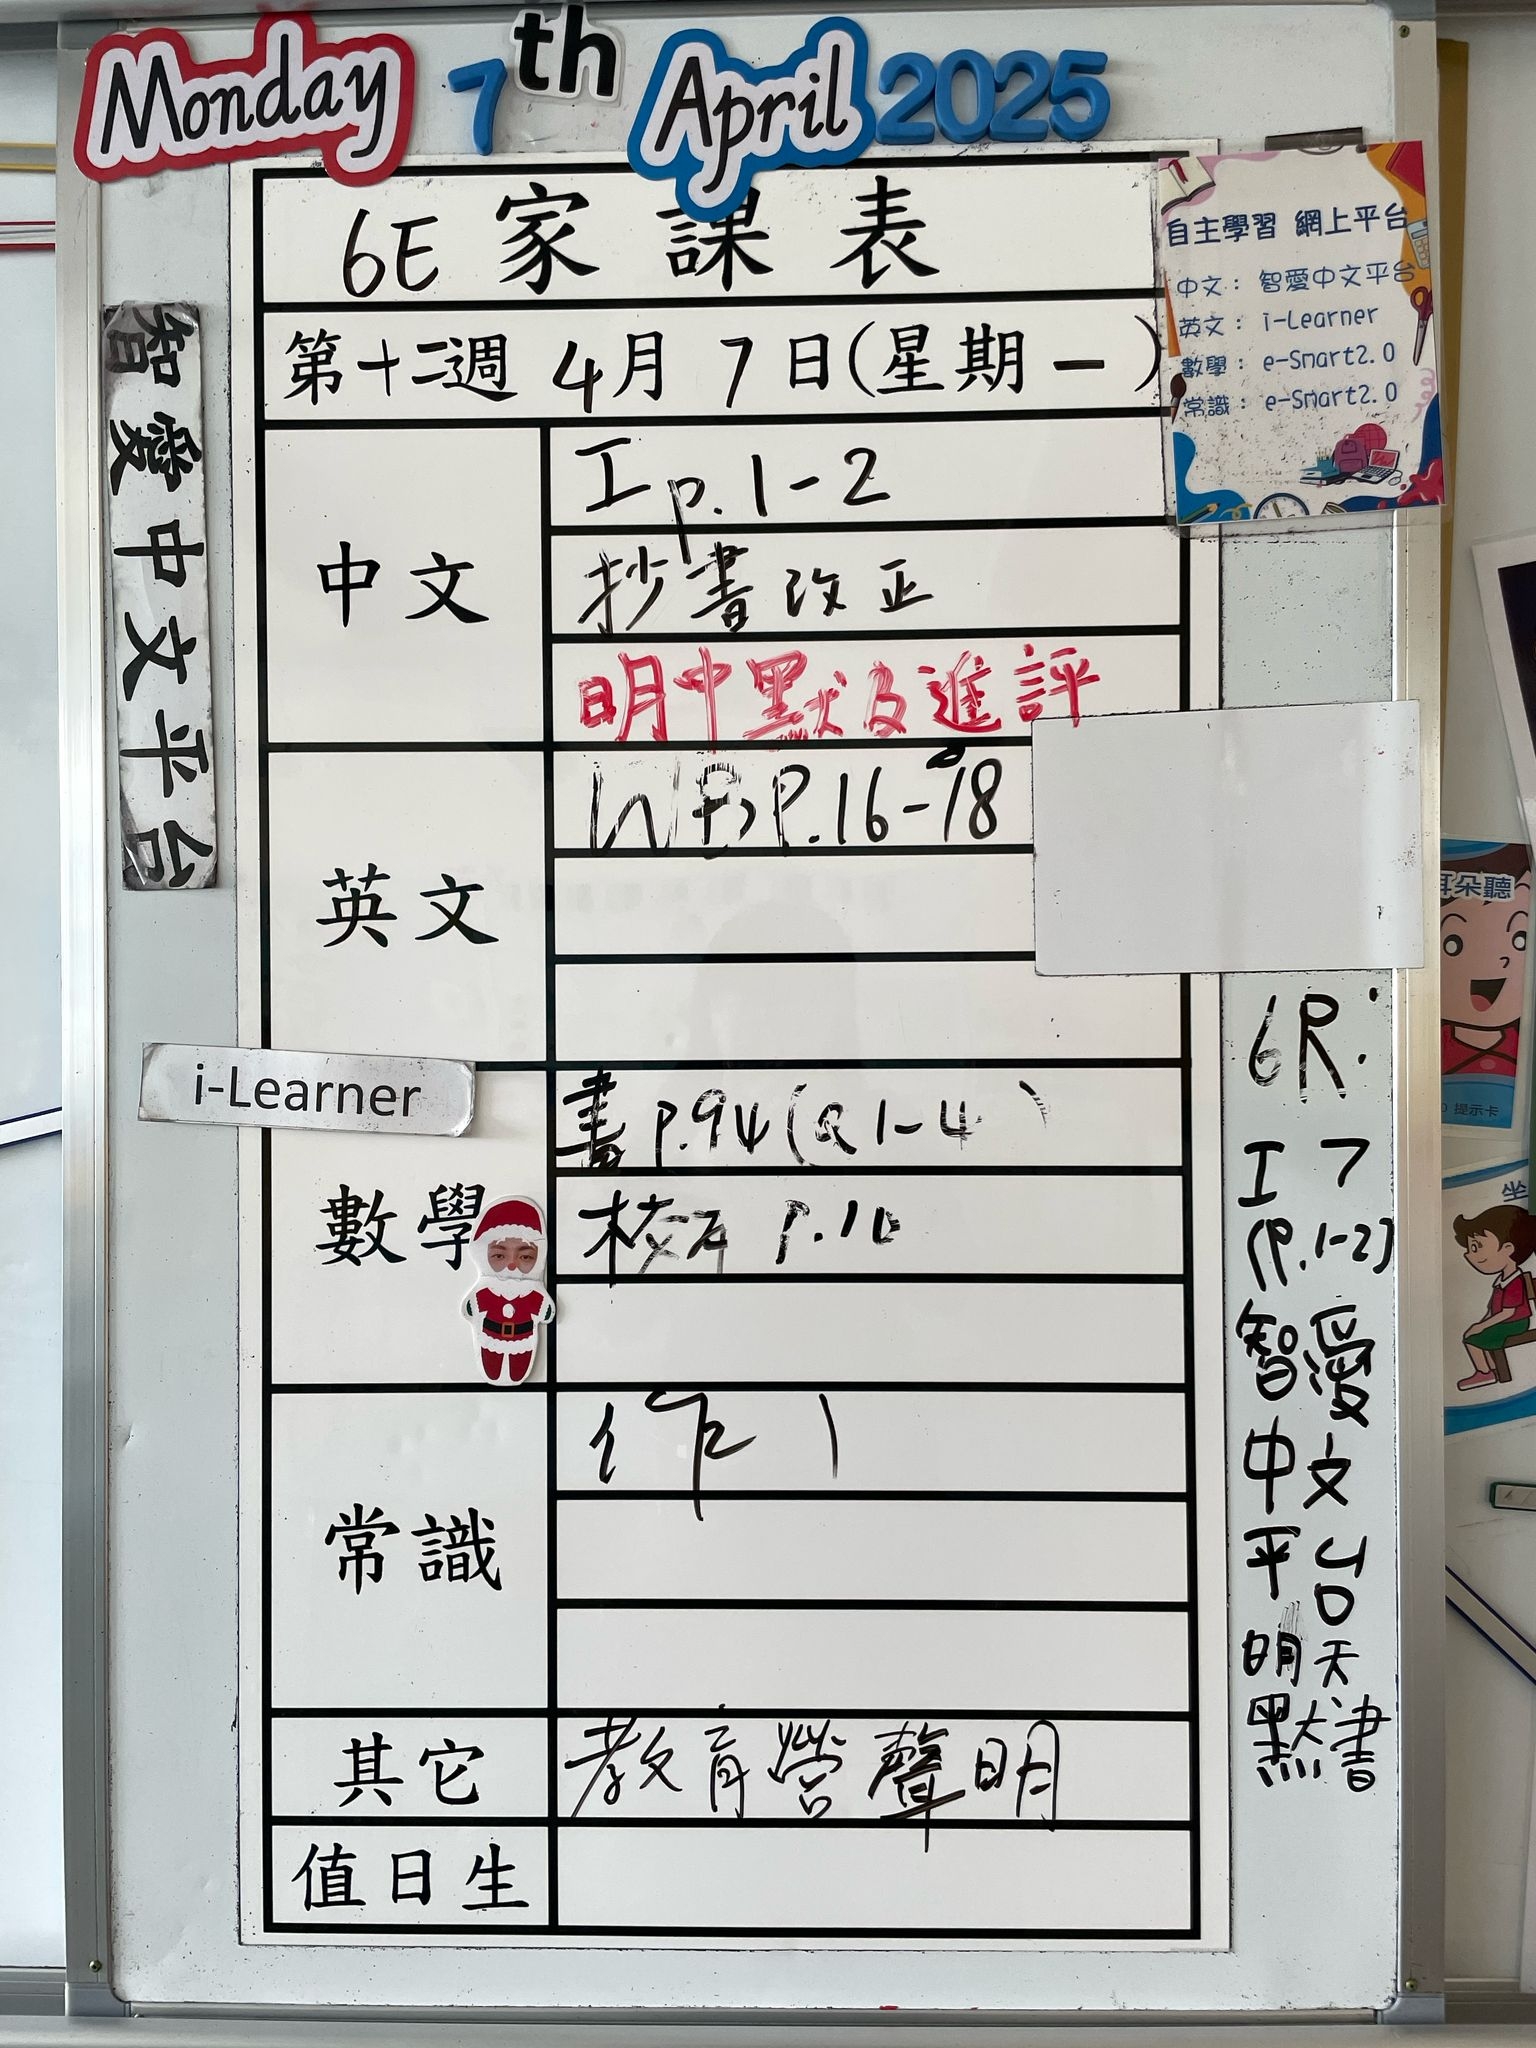 Monday 7th April 2025
6E 家課表
第十二週 4月7日(星期一)
自主學習 網上平台
中文：智愛中文平台
英文：i-Learner
數學：e-Smart2.0
常識：e-Smart2.0
智愛中文平台
中文
工 p.1-2
抄書改正
明中默及進評
英文
WB P.16-18
i-Learner
數學
書 p.94(Q1-4)
校本 P.10
常識
作1
其它
教育營聲明
值日生
6R:
工7
(P.1-2)
智愛
中文
平台
明天
默書
耳朵聽
提示卡
坐